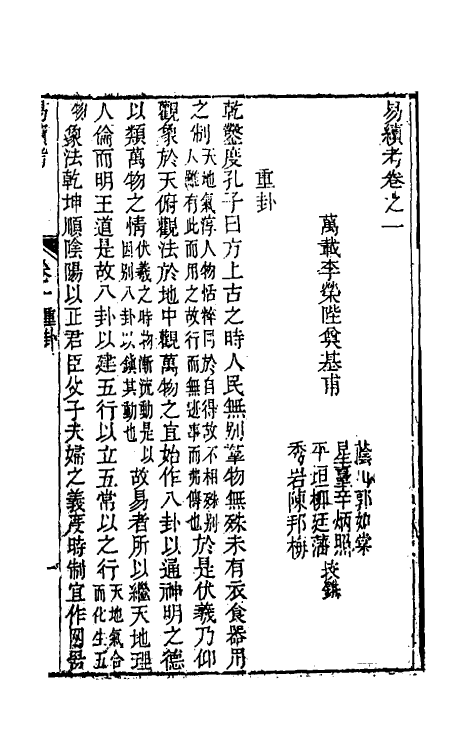 易續考卷之一
萬載李榮陛奠基甫
蔭山郭如棠
星臺辛炳照
平垣柳廷藩挍鐫
秀岩陳邦梅
重卦
乾鑿度孔子曰方上古之時人民無别羣物無殊未有衣食器用
之制天地氣淳人物恬粹同於自得故不相殊别人雖有此而用之故行而無迹事而無傳也於是伏羲乃仰
觀象於天俯觀法於地中觀萬物之宜始作八卦以通神明之德
以類萬物之情伏羲之時物漸流動是以因别八卦以鎮其動也故易者所以繼天地理
人倫而明王道是故八卦以建五行以立五常以之行天地氣合而化生五
物象法乾坤順陰陽以正君臣父子夫婦之義度時制宜作罔罟
易續考
卷一重卦